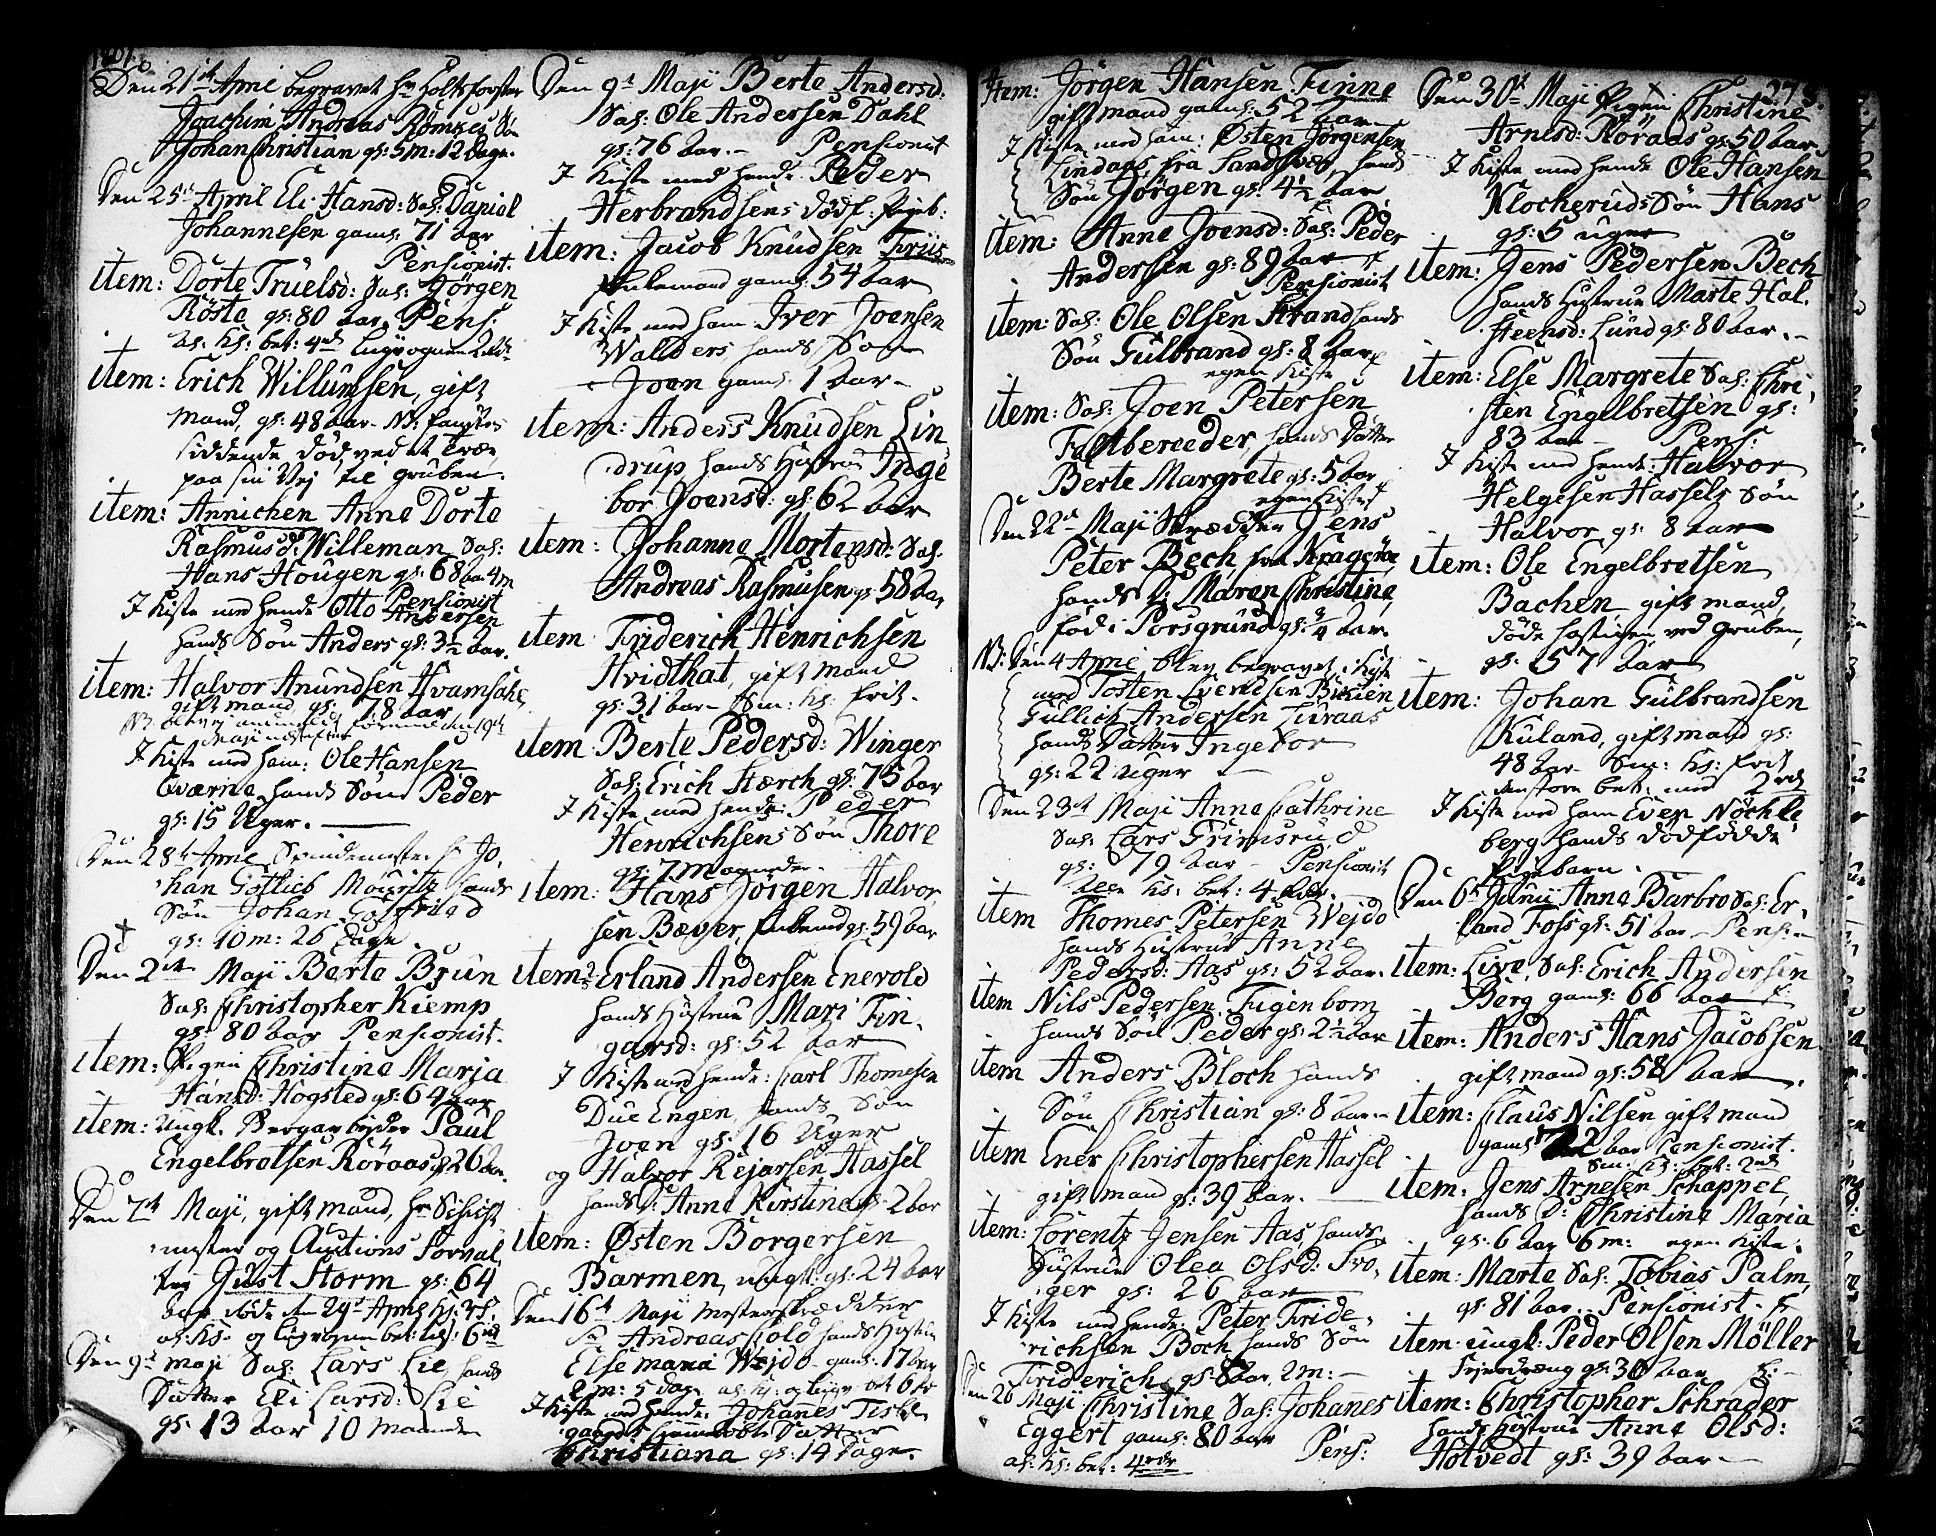 Den 21de April begravet Hr Holtzforster
Joachim Andreas Römers Sön
Johan Christian gl: 5 m: 12 Dage.
Den 25de April Eli Hansd: Sal: Daniel
Johannesen gaml: 71 Aar
Pensionist.
item: Dorte Truelsd: Sal: Jørgen
Röste gl: 80 Aar. Pens:
item: Erich Willumsen, gift
Mand, gl: 48 Aar. NB: fandtes
siddende død ved et Træe
paa sin Vej til Gruben.
item: Annichen Anne Dorte
Rasmusd: Willeman Sal:
Hans Hougen gl: 68 Aar 4 m
Pensionist
I Kiste med hende Otto Andersen
hands Søn Anders gl: 3½ Aar.
item: Halvor Anundsen Hvamsahe
gift mand gl: 78 Aar
I Kiste med ham: Ole Hansen
Eværne hands Søn Peder
gl: 15 Uger.
Den 28de April Spindemester Hr Jo-
han Gotlieb Mouritz hands
Søn Johan Gotfried
gl: 10 m: 26 Dage.
Den 2de Maji Berte Brun
Sal: Christopher Kiemp
gl: 80 Aar Pensionist.
item: Pigen Christine Maria
Hansd: Hogsted gl: 64 Aar
item: Ungk. Bergarbejder Paul
Engelbretsen Röraas gl: 26 Aar.
Den 7de Maji, gift mand, Hr Schicht
mester og Auctions Forval-
ter Just Storm gl: 64
Aar døde den 29de April
Den 9de Maji Sal: Lars Lie hands
Datter Eli Larsd: Lie
gl: 13 Aar 10 Maaneder
Den 9de Maji Berte Andersd:
Sal: Ole Andersen Dahl
gl: 76 Aar. Pensionist
I Kiste med hende Peder
Herbrandsens dødf: Pigeb:
item: Jacob Knudsen Friis
Enkemand gaml: 54 Aar
I Kiste med ham Iver Joensen
Walders hands Søn
Joen gaml: 1 Aar
item: Anders Knudsen Lin
drup hands Hustrue Inge
bor Joensd: gl: 62 Aar
item: Johanne Mortensd: Sal:
Andreas Rasmusen gl: 58 Aar
item Friderich Henrichsen
Hvidthat, gift mand
gl: 31 Aar
item Berte Pedersd: Winger
Sal: Erich Stærch gl: 75 Aar
I Kiste med hende: Peder
Henrichsens Søn Thore
gl: 7 Maaneder.
item: Hans Jørgen Halvor
sen Bæver, Enkemd gl: 59 Aar
item: Erland Andersen Enevold
hands Hustrue Mari Fin-
garsd: gl: 52 Aar
I Kiste med hende: Carl Thomesen
Due Engen hands Søn
Joen gl: 16 Uger
og Halvor Rejarsen Hassel
hands D: Anne Kirstine gl: 2 Aar
item: Østen Borgersen
Barmen, ungk: gl: 24 Aar
Den 16de Maji Mesterskrædder
Andreas Cold hands Hustrue
Else Maria Wejdo gaml: 17 Aar
2 m: 5 Dage
I Kiste med hende: Johannes Tisle
Datter
Christiana gl: 14 Dage.
item: Jörgen Hansen Finne
gift mand gaml: 52 Aar
I Kiste med ham: Østen Jörgensen
Lindaas fra Sandsvær, hands
Søn Jörgen gl: 4½ Aar
item: Anne Joensd: Sal: Peder
Andersen gl: 89 Aar
Pensionist
item: Sal: Ole Olsen Strand hands
Søn Gulbrand gl: 8 Aar
egen Kiste
item: Sal: Joen Petersen
Faltbereeder, hands Datter
Berte Margrete gl: 5 Aar
egen Kiste
Den 22de Maji Skrædder Jens
Peter Bech fra Kragerøe
hands D: Maren Christine,
fød i Porsgrund gl: ¾ Aar.
NB: Den 4 April blev begravet i Kiste
med Tosten Evendsen
Gullich Andersen Luraas
hands Datter Ingebor
gl: 22 Uger
Den 23de Maji Anne Cathrine
Sal: Lars Grimsrud
gl: 79 Aar Pensionist
item Thomes Petersen Wejdo
hands Hustrue Anne
Pedersd: Aas gl: 52 Aar.
item Nils Pedersen Figenbom
hands Søn Peder gl: 2½ Aar
item Anders Bloch hands
Søn Christian gl: 8 Aar
item Ener Christophersen Hassel
gift mand gl: 39 Aar.
item: Lorentz Jensen Aas hands
Hustrue Olea Olsd: Fro-
ger gl: 26 Aar
I Kiste med hende: Peter Fride-
richsen Boch hands Søn
Friderich gl: 8 Aar, 2 m:
Den 26 Maji Christine Sal: Johannes
Eggert gaml: 80 Aar
Pens:
278.
Den 30te Maji Pigen Christine
Arnesd: Röraas gl: 50 Aar
I Kiste med hende Ole Hansen
Klocherud: Søn Hans
gl: 5 uger
item: Jens Pedersen Bech
hands Hustrue Marte Hal-
steensd: Lund gl: 80 Aar.
item: Else Margrete Sal: Chri-
sten Engelbretsen gl:
83 Aar Pens:
I Kiste med hende: Halvor
Helgesen Hassels Søn
Halvor gl: 8 Aar
item: Ole Engelbretsen
Bachen gift mand,
døde hastigen ved Gruben,
gl: 57 Aar
item: Johan Gulbrandsen
Ruland, gift mand gl:
48 Aar
I Kiste med ham Even Nøchle-
berg hands dødfødde
Pigebarn.
Den 6te Junii Anne Barbro Sal: Er-
land Foss gl: 51 Aar Pens:
item: Live, Sal: Erich Andersen
Berg gaml: 66 Aar
item: Anders Hans Jacobsen
gift mand gl: 58 Aar.
item: Claus Nilsen gift mand
gaml: 72 Aar Pensionist.
item: Jens Arnesen Schappel,
hands D: Christine Maria
gl: 6 Aar 6 m: egen Kiste.
item: Marte Sal: Tobias Palm,
gl: 81 Aar. Pensionist.
item: ungk: Peder Olsen Møller
gl: 30 Aar
item: Christopher Schrader
hands Hustrue Anne Olsd:
Hotvedt gl: 39 Aar.